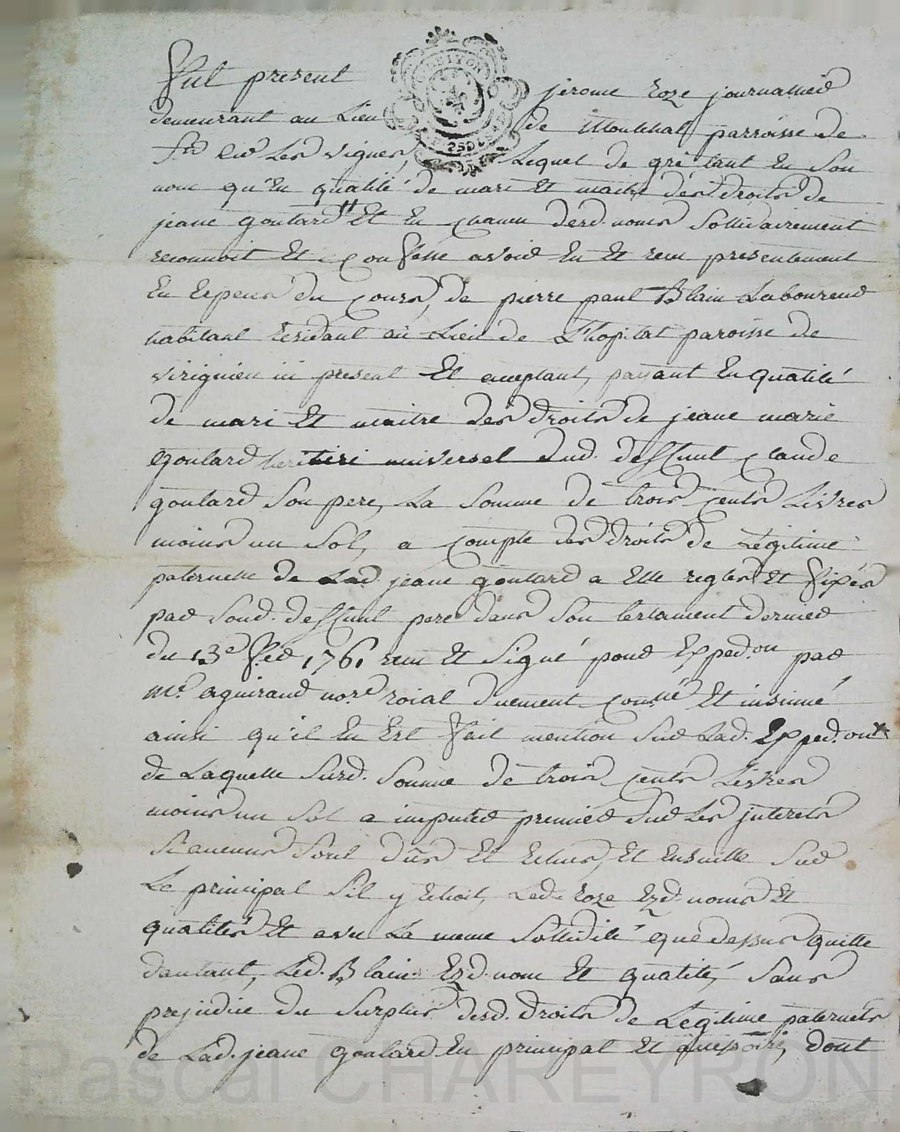 Fut present jerome roze journallier
demeurant au Lieu de Montchal parroisse de
St Les vignes, Lequel de gré tant en son
nom qu'en qualité de mari et maitre des droits de
jeane goutard et en chacun desd. noms sollidairement
reconnoit et confesse avoir eu et reçu presentement
en especes du cours, de pierre paul Blain Laboureur
habitant residant au Lieu de L'hopital paroisse de
virignieu ici present et acceptant, payant en qualité
de mari et maitre des droits de jeane marie
goutard heritiere universel dud. deffunt claude
goutard son pere, La somme de trois cents Livres
moins un sol, a compte des droits de Légitime
paternelle de Lad. jeane goutard a elle reglés et fixés
par sond. deffunt pere dans son testament dernier
du 13e fer 1761 reçu et signé pour Exped.on par
me. aguiraud nore. roial duement con.né et insinué
ainsi qu'il en est fait mention sur Lad. Exped.on
de Laquelle surd. somme de trois cents Livres
moins un sol a imputer premier sur Les interets
si aucuns sont dûs et echus, et ensuitte sur
Le principal s'il y echoit, Led. roze ezd. noms et
qualités et avec La meme sollidité que dessus quitte
d'autant, Led. Blain ezd. nom et qualité, sans
prejudice du surplus desd. droits de Legitime paternels
de Lad. jeane goutard en principal et accessoire, dont
Pascal CHAREYRON